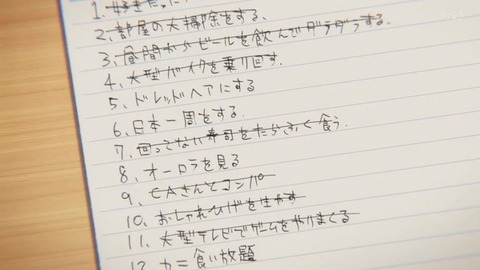 1. 好きだっ
2. 部屋の大掃除をする.
3. 昼間からビールを飲んでダラダラする.
4. 大型バイクを乗り回す.
5. ドレッドヘアにする
6. 日本一周をする.
7. 回ってない寿司をたらふく食う
8. オーロラを見る
9. CAさんとコンパ
10. おしゃれひげを生やす
11. 大型テレビでゲームをやりまくる
12. カニ食い放題